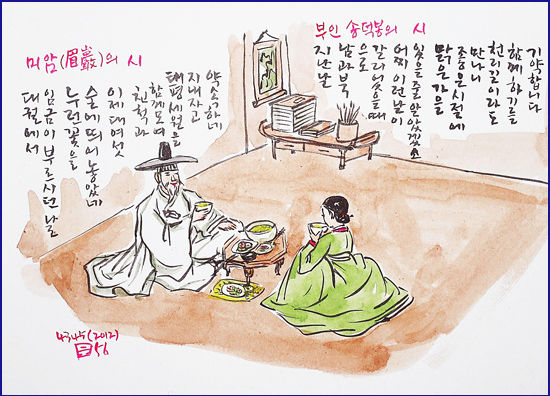 미암(眉巖)의 시
대궐에서
임금이 부르시던 날
누런 꽃을
술에 띄어 놓았네
이제 대여섯
친척과
함께 모여
태평세월을
지내자고
약속하네
부인 송덕봉의 시
지난날
남과 북
으로
갈라 있을 때
어찌 이런 날이
있을 줄 알았겠소
맑은 가을
좋은 시절에
만나니
천리길이라도
함께하기를
기약합니다
4345(2012)